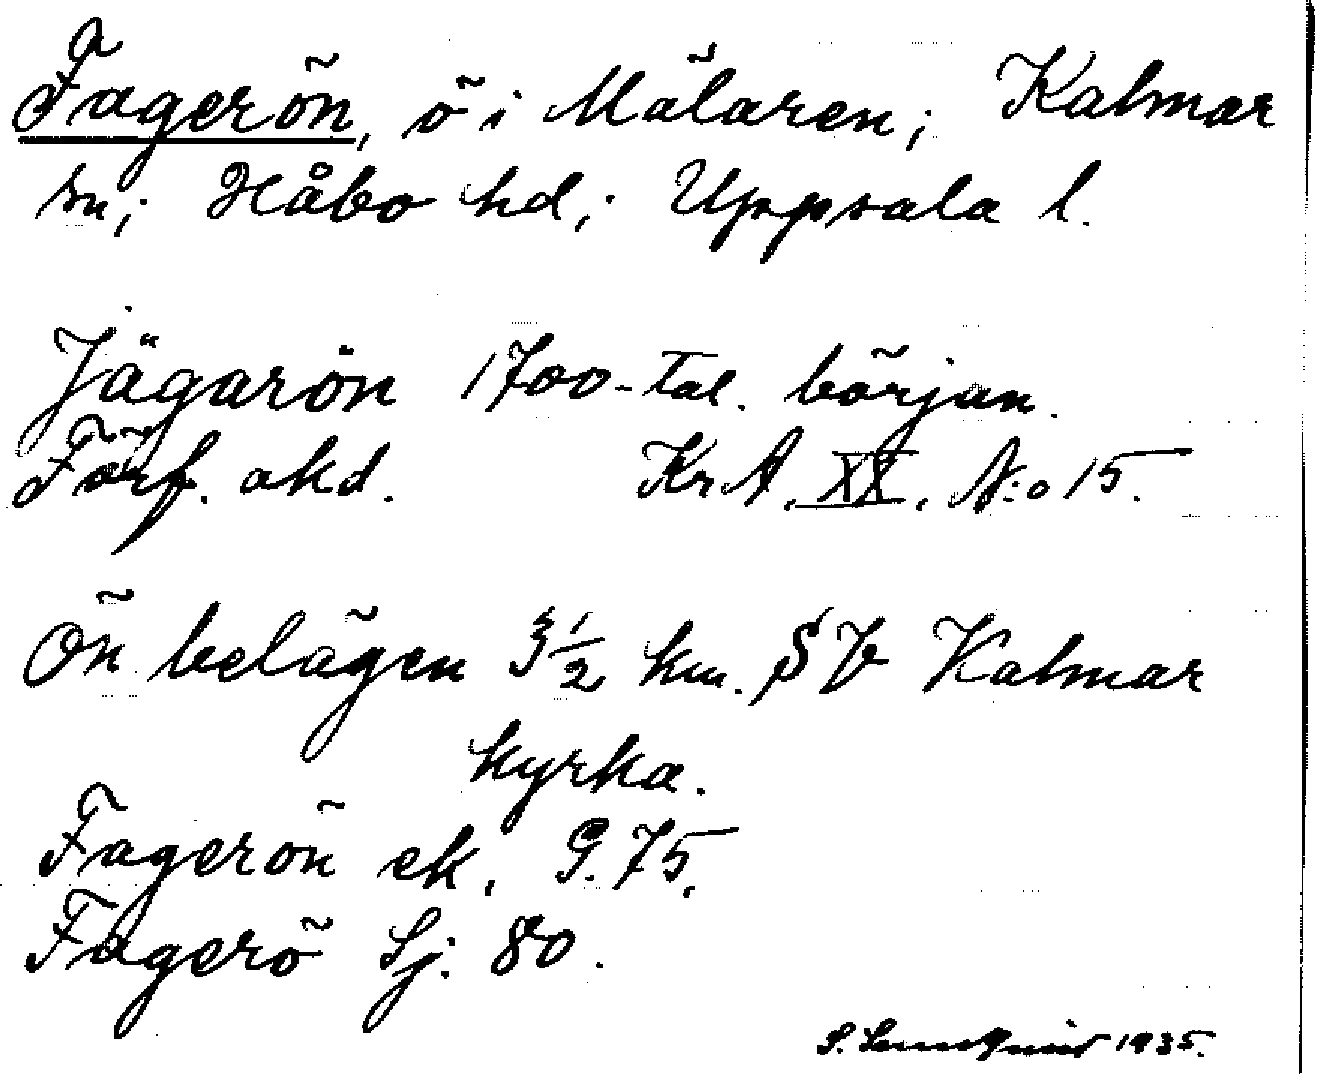 Fagerön, ö i Mälaren; Kalmar
sn; Håbo hd; Uppsala l.
Jägarön 1700-tal. början.
Förf. okd. KrA. XX. N:o 15.
Ön belägen 3 1/2 km. SV Kalmar
kyrka.
Fagerön ek. G. 75.
Fagerö Sj. 80.
1935.